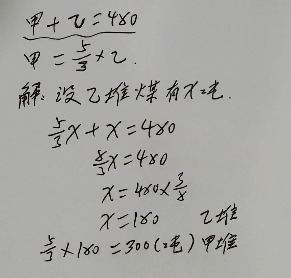 甲+乙=480
甲=5/3×乙.
解:设乙堆煤有x吨.
5/3x+x=480
8/3x=480
x=480×3/8
x=180 乙堆
5/3×180=300(吨)甲堆